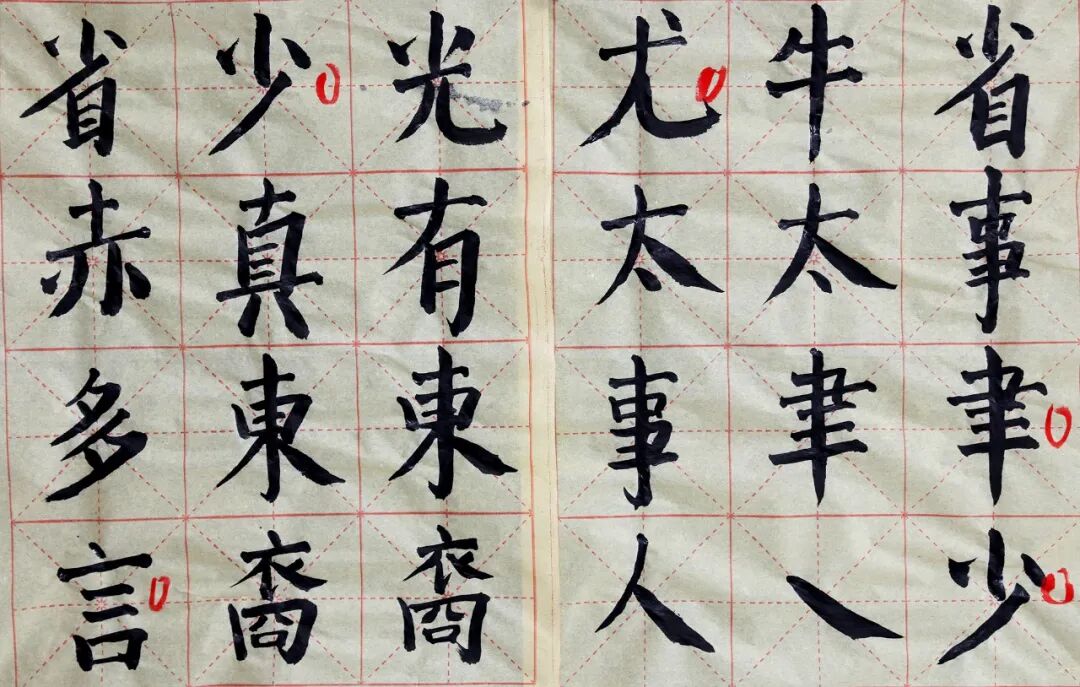 省事聿少
牛太聿㇏
尤太事人
光有東裔
少真東裔
省赤多言